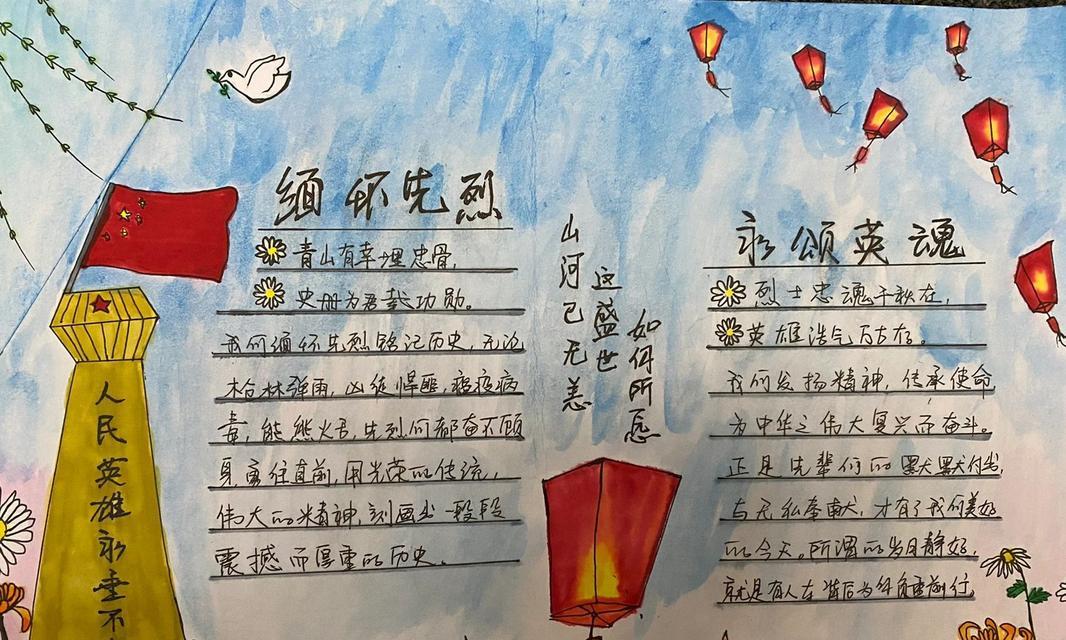 人民英雄永垂不
缅怀先烈
青山有幸埋忠骨,
史册为君载功勋。
我们缅怀先烈铭记历史,无论
枪林弹雨,凶徒悍匪,瘟疫病
毒,能熊火舌,先烈们都奋不顾
身勇往直前,用光荣的传统,
伟大的精神,刻画出一段段
震撼而厚重的历史。
山河已无恙
这盛世
如你所愿
永颂英魂
烈士忠魂千秋在,
英雄浩气万古存。
我们发扬精神,传承使命
为中华之伟大复兴而奋斗。
正是先辈们的默默付出,
与无私奉献,才有了我们美好
的今天。所谓的岁月静好,
就是有人在背后为你负重前行。